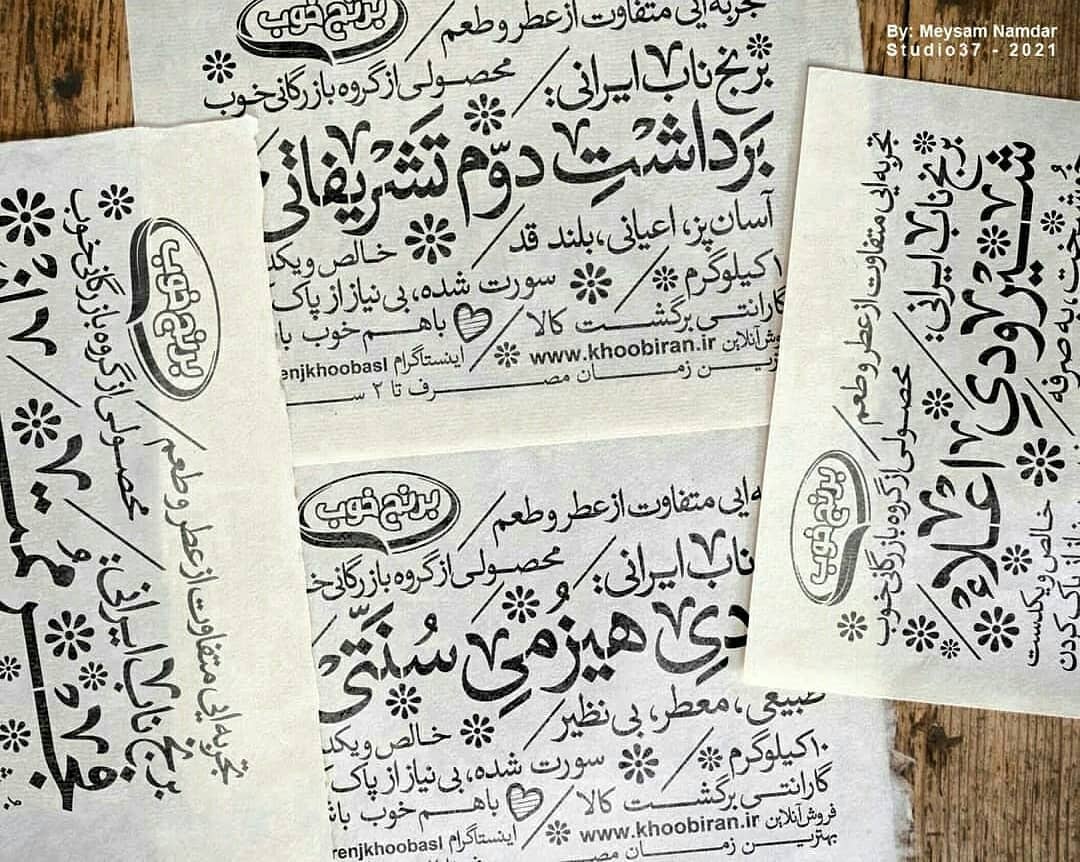 By: Meysam Namdar
Studio37 - 2021
برنج خوب
تجربه‌ایی متفاوت از عطر و طعم
محصولی از گروه بازرگانی خوب
برنج ناب ایرانی:
برداشتِ دوّم تَشریفاتی
آسان‌پز، اعیانی، بلند قد
خالص و یکد
کیلوگرم
سورت شده، بی نیاز از پاک
گارانتی برگشت کالا
باهم خوب با
آنلاین www.khoobiran.ir
اینستاگرام enjkhoobasl
زمان مصرف تا ۲ سـ
برنج خوب
ایی متفاوت از عطر و طعم
محصولی از گروه بازرگانی خ
ناب ایرانی:
دیِ هیزُمیِ سُنَتّی
طبیعی، معطر، بی نظیر
خالص و یکد
۱۰ کیلوگرم
سورت شده، بی نیاز از پاک
گارانتی برگشت کالا
باهم خوب با
فروش آنلاین www.khoobiran.ir
اینستاگرام renjkhoobasl
بهترین زمان مصرف
تجربه‌ایی متفاوت از عطر و طعم
برنج خوب
محصولی از گروه بازرگانی خوب
برنج ناب ایرانی:
تجربه‌ایی متفاوت از عطر و طعم
برنج خوب
محصولی از گروه بازرگانی خوب
برنج ناب ایرانی:
شیرودیِ اَعْلاء
به صرفه
خالص و یکدست
از پاک کردن